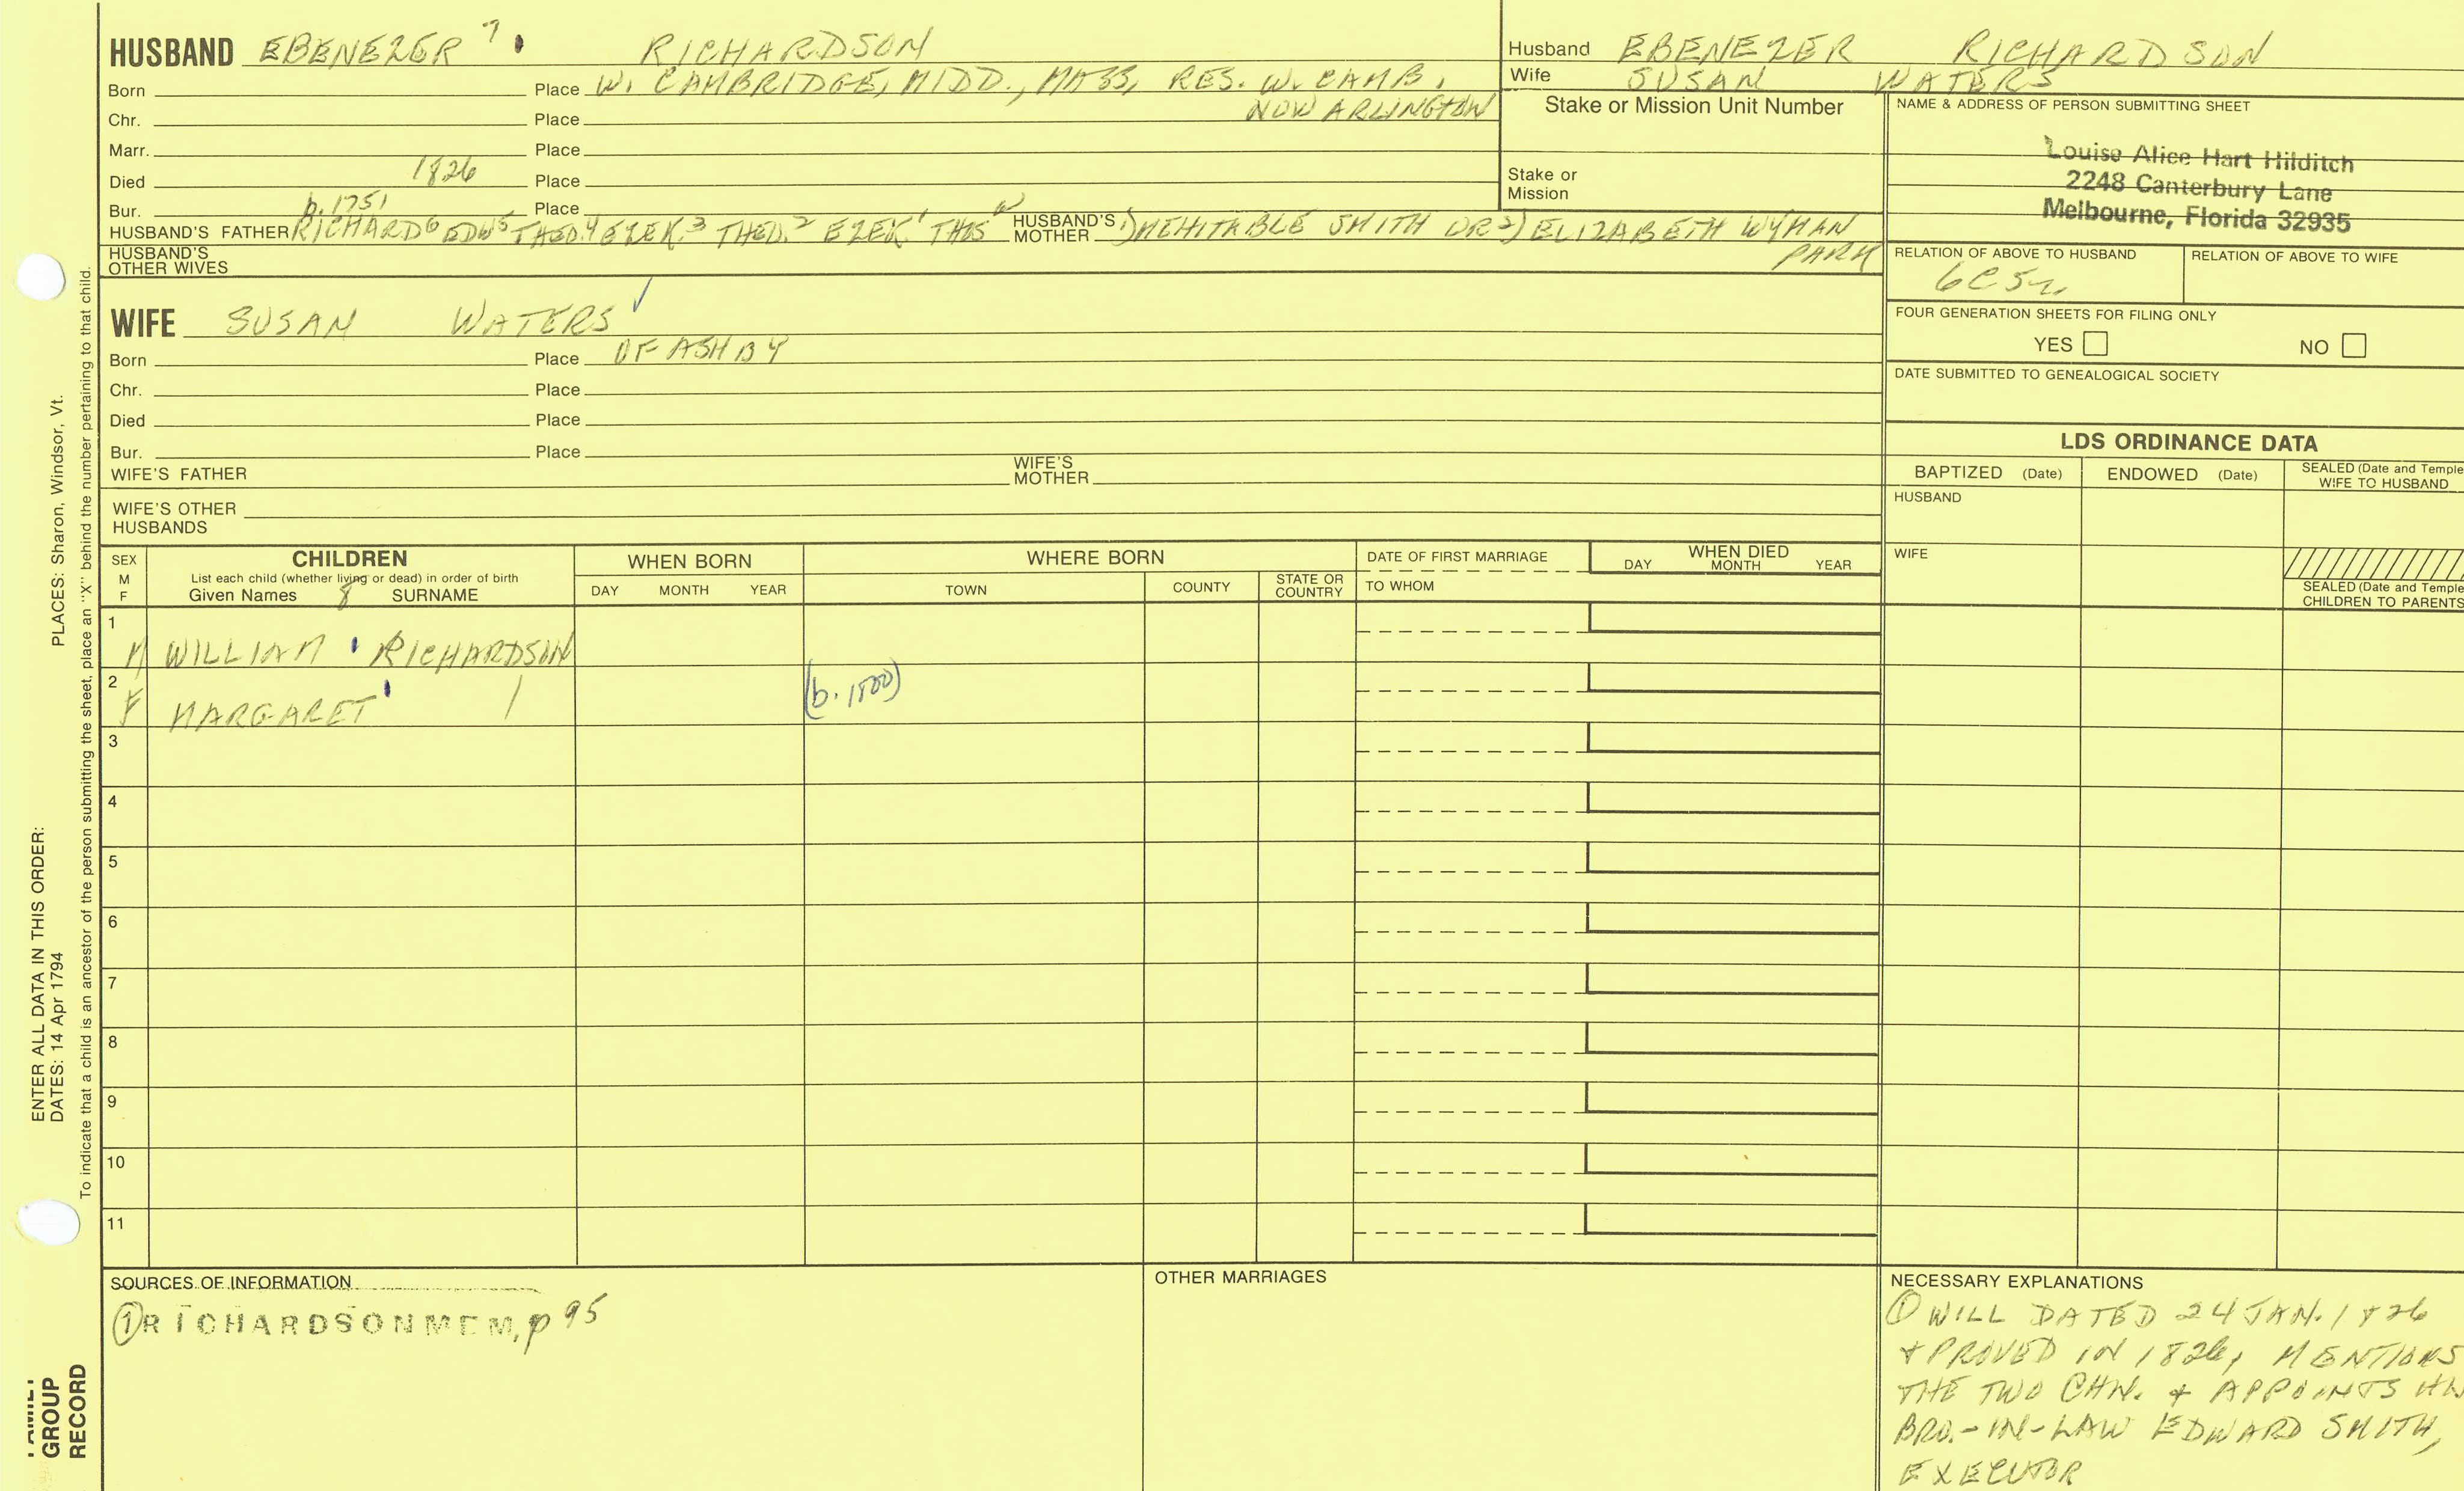 HUSBAND EBENEZER 7 RICHARDSON
Born Place W. CAMBRIDGE, MIDD., MASS, RES. W. CAMB,
NOW ARLINGTON
Chr. Place
Marr. Place
Died 1826 Place
b. 1751
Bur. Place
HUSBAND'S FATHER RICHARD6 EDW5 THEO.4 EZEK.3 THEO.2 EZEK.1 THOS
HUSBAND'S MOTHER 1) MEHITABLE SMITH OR 2) ELIZABETH WYMAN
PARK
HUSBAND'S OTHER WIVES
WIFE SUSAN WATERS
Born Place OF ASHBY
Chr. Place
Died Place
Bur. Place
WIFE'S FATHER WIFE'S MOTHER
WIFE'S OTHER
HUSBANDS
Husband EBENEZER RICHARDSON
Wife SUSAN WATERS
Stake or Mission Unit Number
Stake or
Mission
NAME & ADDRESS OF PERSON SUBMITTING SHEET
Louise Alice Hart Hilditch
2248 Canterbury Lane
Melbourne, Florida 32935
RELATION OF ABOVE TO HUSBAND RELATION OF ABOVE TO WIFE
FOUR GENERATION SHEETS FOR FILING ONLY
YES NO
DATE SUBMITTED TO GENEALOGICAL SOCIETY
LDS ORDINANCE DATA
BAPTIZED (Date) ENDOWED (Date) SEALED (Date and Temple
WIFE TO HUSBAND
HUSBAND
WIFE
SEALED (Date and Temple
CHILDREN TO PARENTS
SEX
M
F
CHILDREN
List each child (whether living or dead) in order of birth
Given Names 8 SURNAME
WHEN BORN
DAY MONTH YEAR
WHERE BORN
TOWN COUNTY STATE OR COUNTRY
DATE OF FIRST MARRIAGE
TO WHOM
WHEN DIED
DAY MONTH YEAR
1
M WILLIAM RICHARDSON
2
F MARGARET (b. 1800)
3
4
5
6
7
8
9
10
11
SOURCES OF INFORMATION
① RICHARDSON MEM, p 95
OTHER MARRIAGES
NECESSARY EXPLANATIONS
① WILL DATED 24 JAN. 1826
+ PROVED IN 1826, MENTIONS
THE TWO CHN. + APPOINTS
BRO.-IN-LAW EDWARD SMITH,
EXECUTOR
ENTER ALL DATA IN THIS ORDER:
DATES: 14 Apr 1794 PLACES: Sharon, Windsor, Vt.
To indicate that a child is an ancestor of the person submitting the sheet, place an "X" behind the number pertaining to that child.
FAMILY
GROUP
RECORD